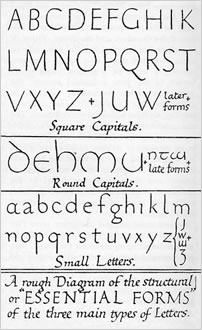 ABCDEFGHIK
LMNOPQRST
VXYZ + JUW later forms
Square Capitals.
DEHMU + NTW late forms
Round Capitals.
aabcdefghiklm
nopqrstuvxyz {j w z
Small Letters.
A rough Diagram of the structural
or "ESSENTIAL FORMS"
of the three main types of Letters.